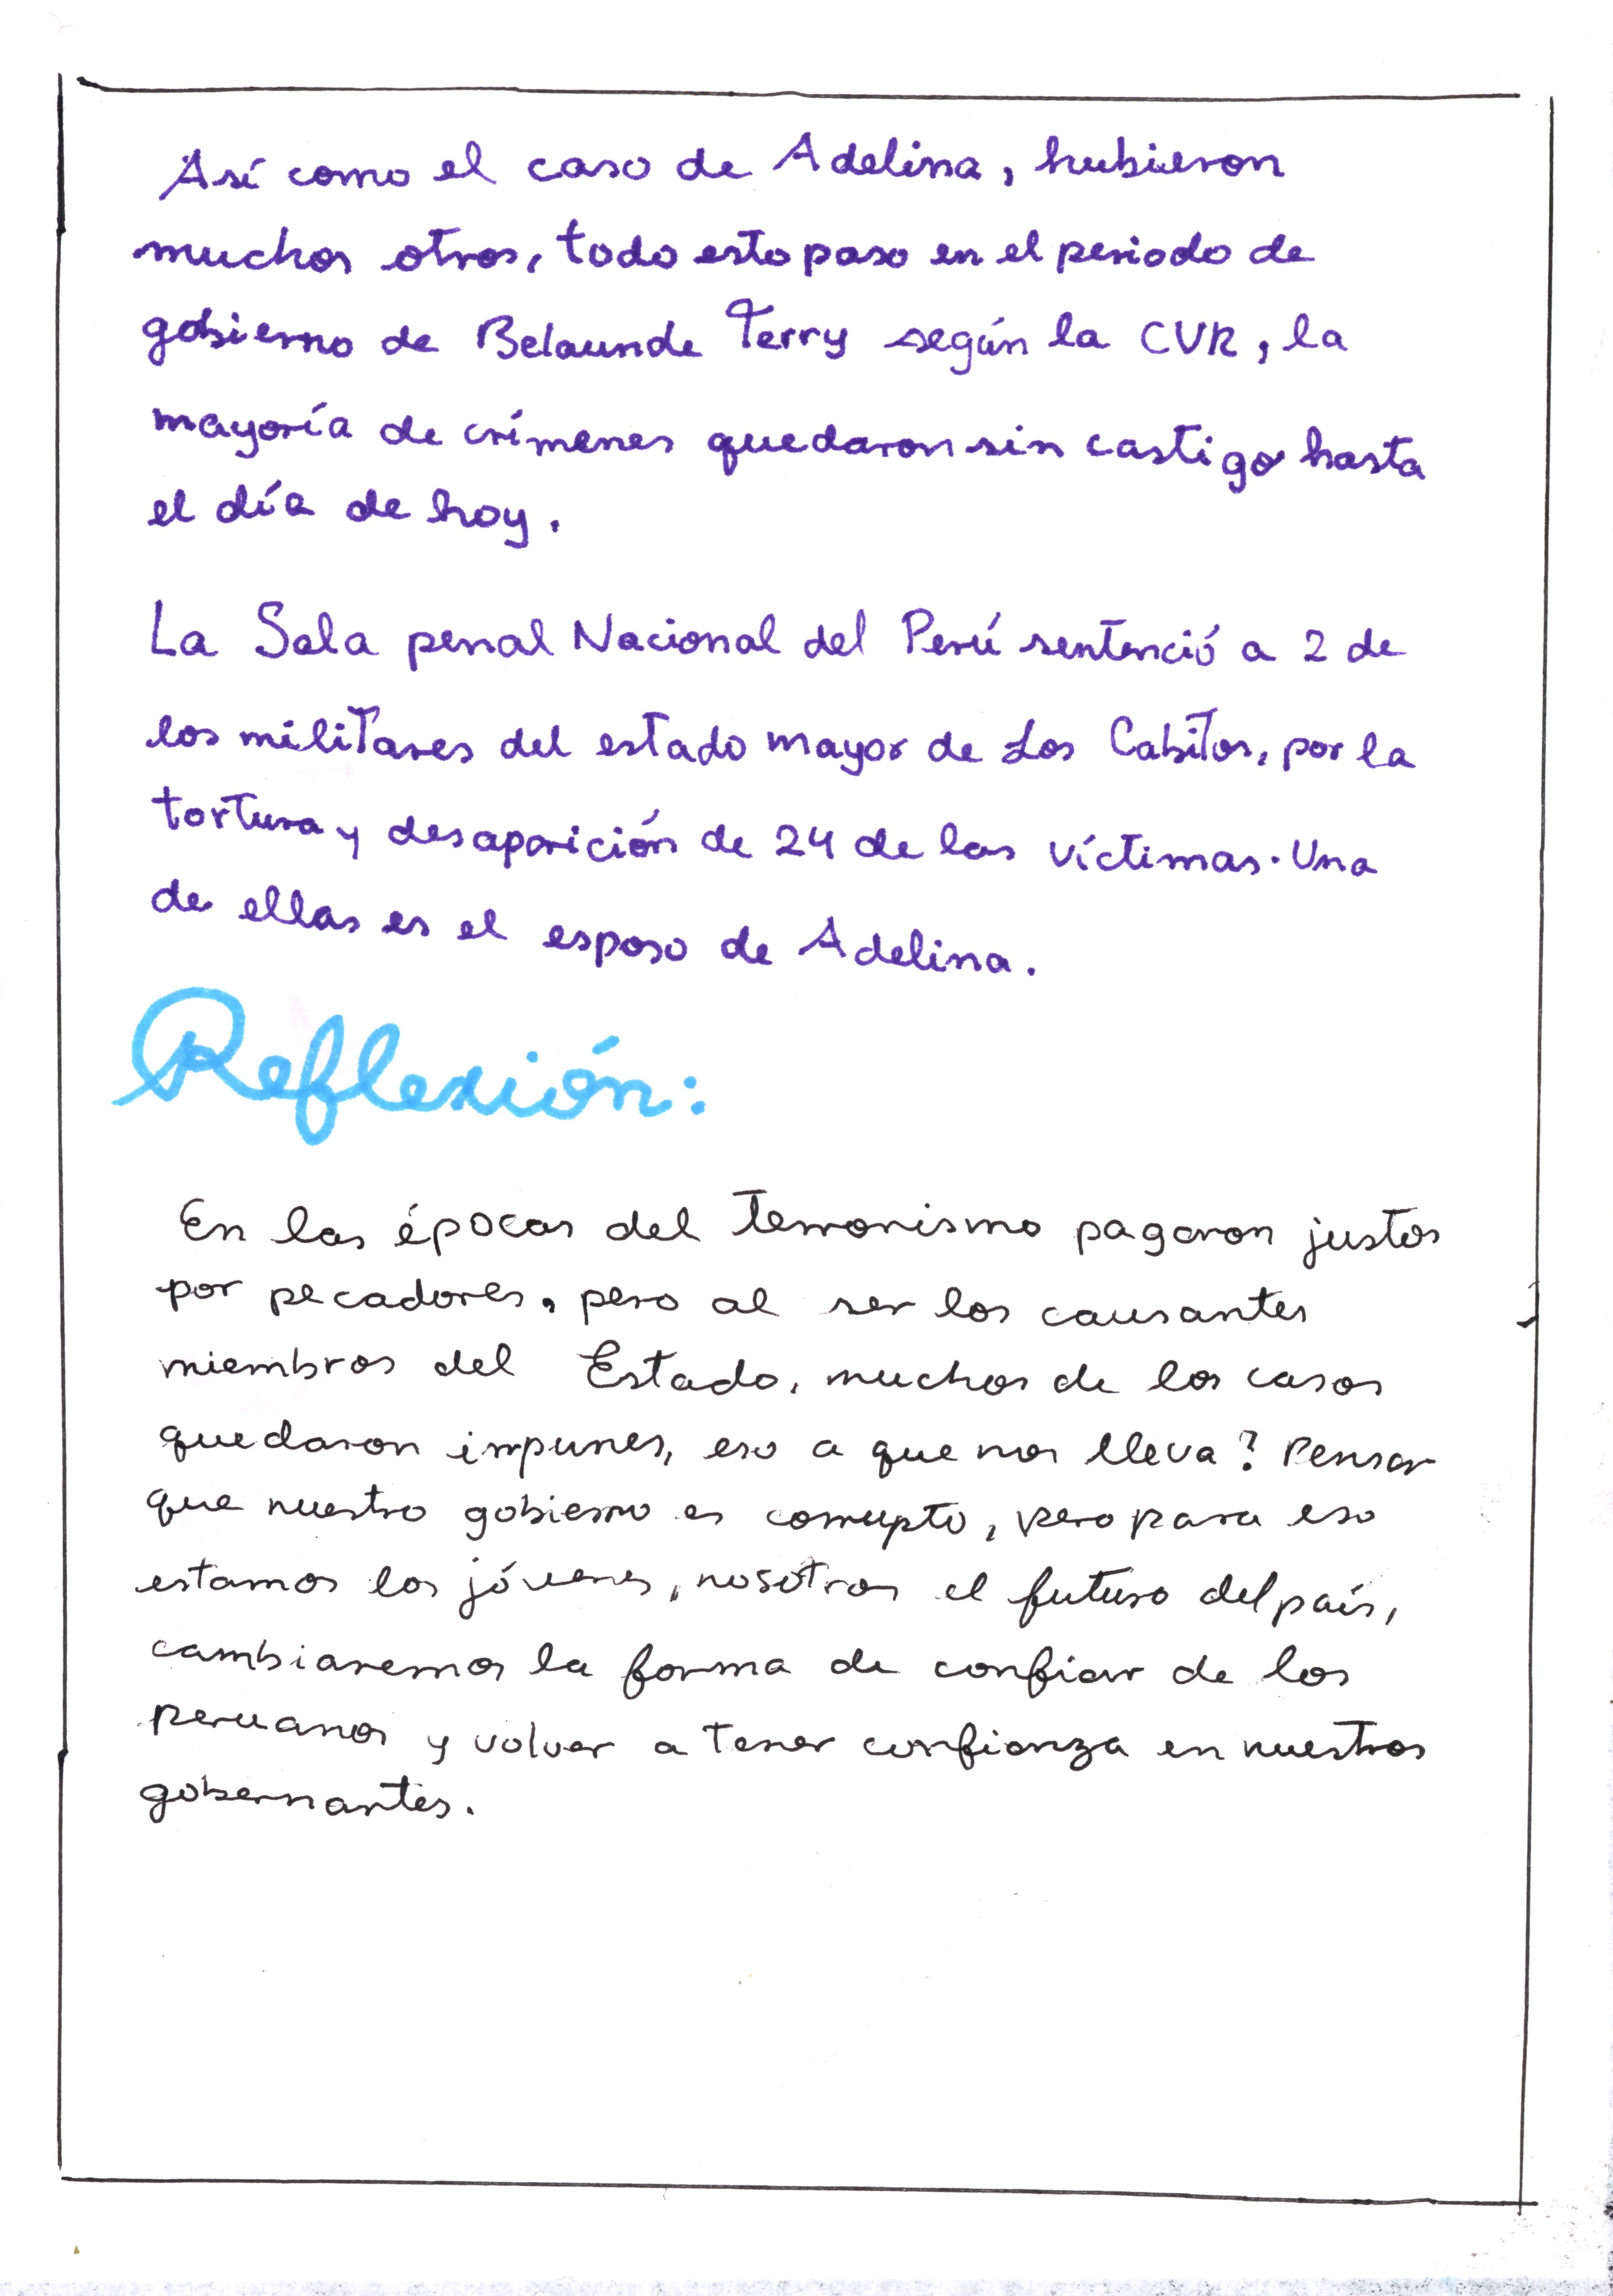 Así como el caso de Adelina, hubieron
muchos otros, todo esto paso en el periodo de
gobierno de Belaunde Terry según la CVR, la
mayoría de crímenes quedaron sin castigo hasta
el día de hoy.
La Sala penal Nacional del Perú sentenció a 2 de
los militares del estado mayor de Los Cabitos, por la
tortura y desaparición de 24 de las víctimas. Una
de ellas es el esposo de Adelina.
Reflexión:
En las épocas del terrorismo pagaron justos
por pecadores, pero al ser los causantes
miembros del Estado, muchos de los casos
quedaron impunes, eso a que nos lleva? Pensar
que nuestro gobierno es corrupto, pero para eso
estamos los jóvenes, nosotros el futuro del país,
cambiaremos la forma de confiar de los
peruanos y volver a tener confianza en nuestros
gobernantes.